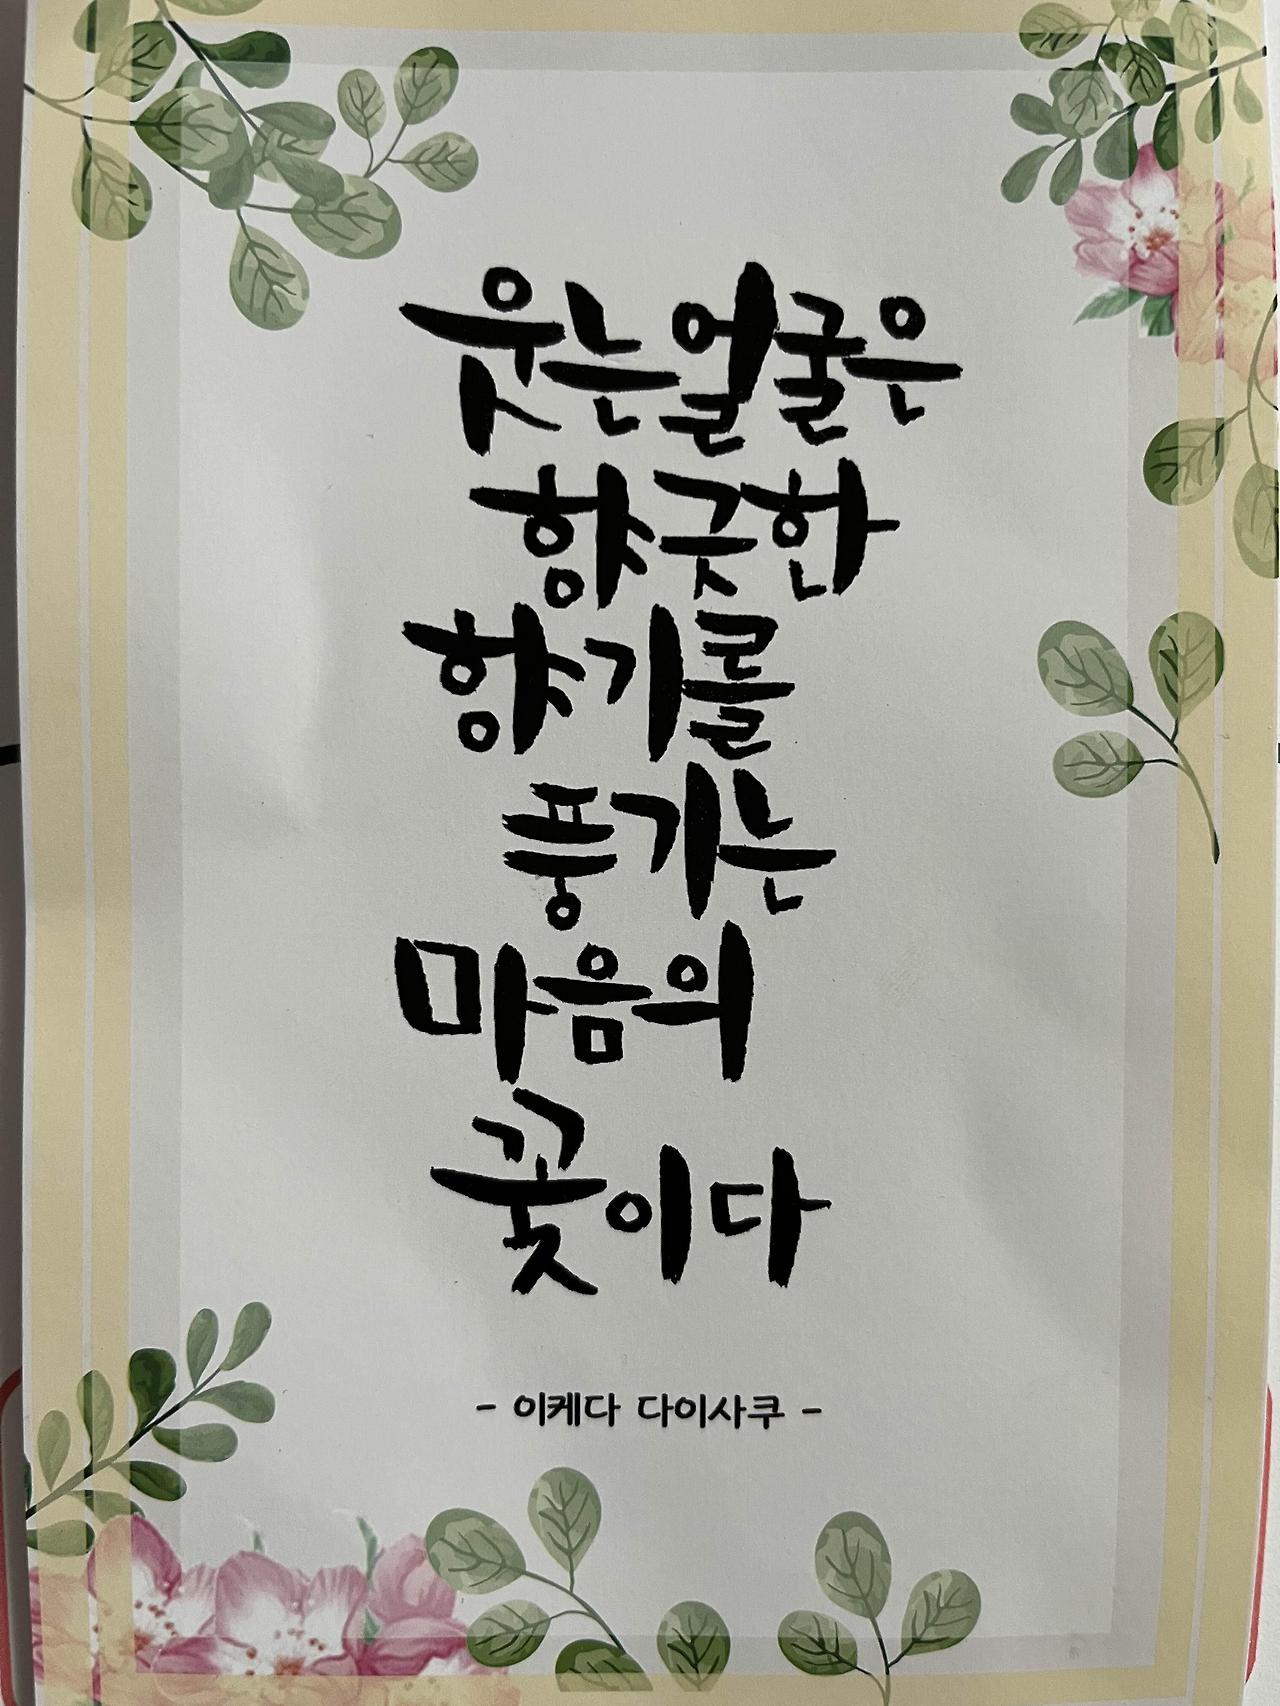 웃는얼굴은
향긋한
향기를
풍기는
마음의
꽃이다
- 이케다 다이사쿠 -